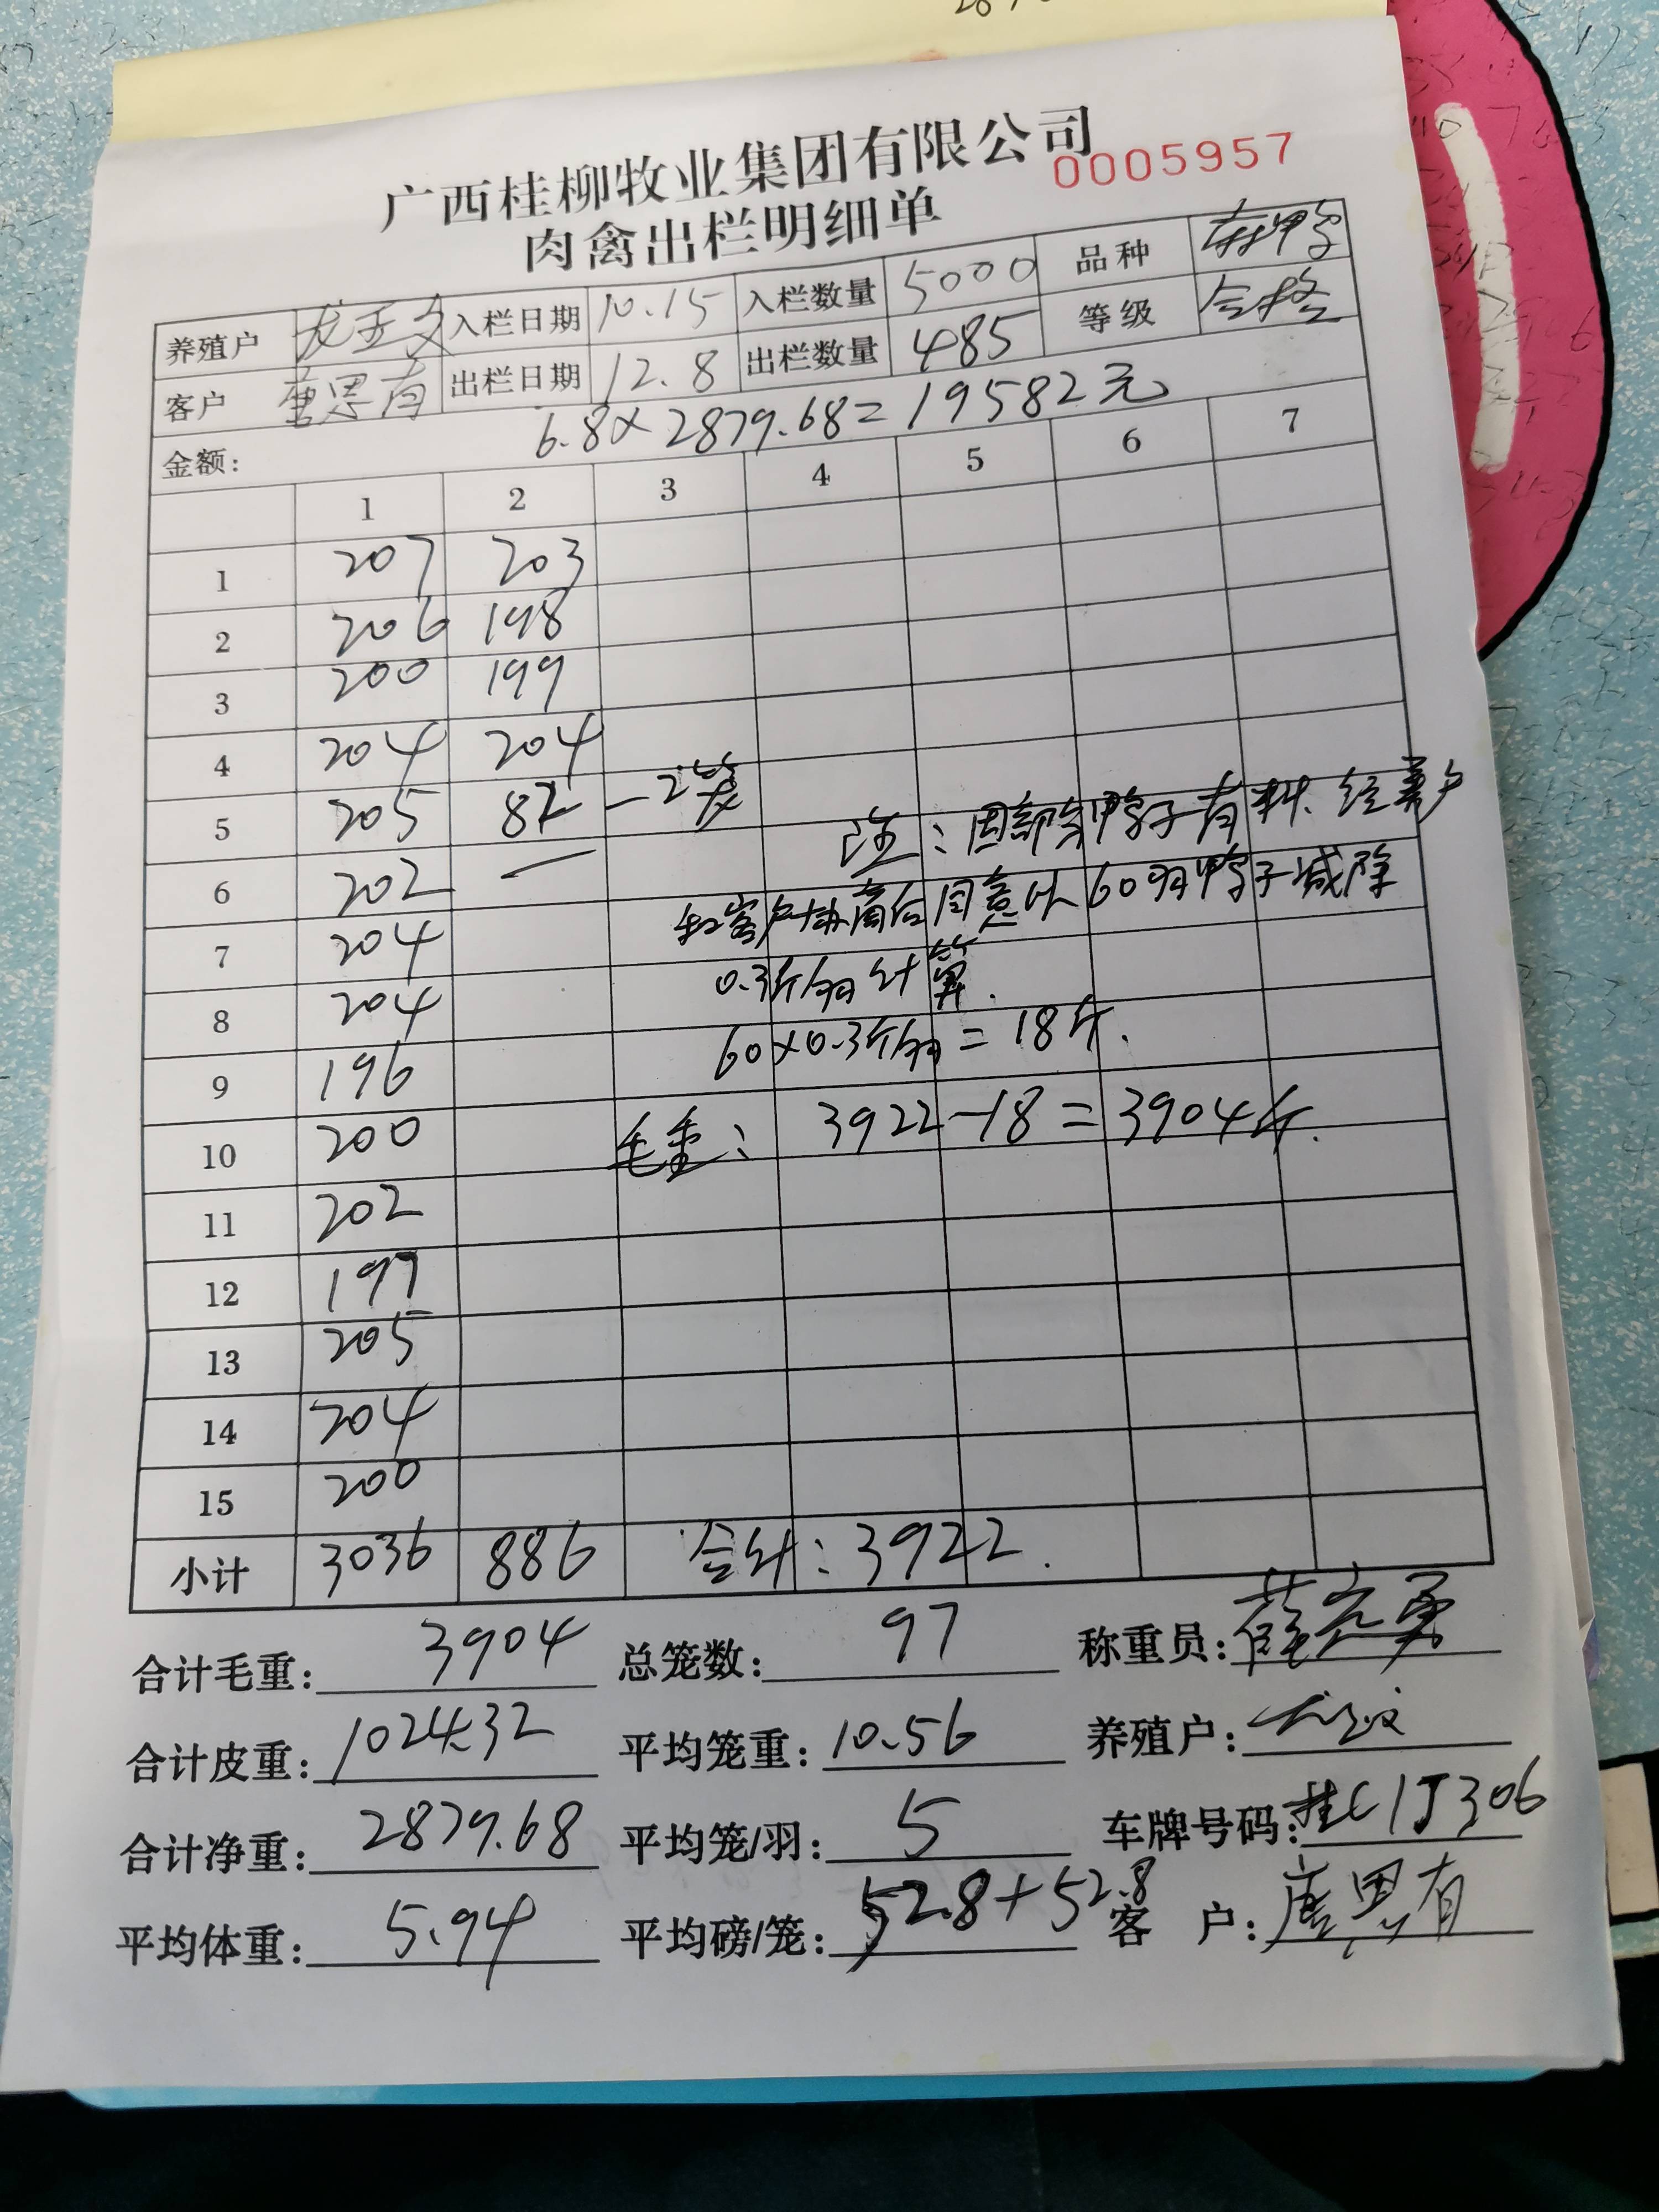 广西桂柳牧业集团有限公司
0005957
肉禽出栏明细单
养殖户 入栏日期 10.15 入栏数量 5000 品种 麻鸭
客户 唐思有 出栏日期 12.8 出栏数量 485 等级 合格
金额: 6.8×2879.68=19582元
1 2 3 4 5 6 7
1 207 203
2 206 198
3 200 199
4 204 204
5 205 82 —2笼
注:因部分鸭子有料.经养户
6 202 —
和客户协商后同意以60羽鸭子减除
7 204
0.3斤/羽计算.
8 204
60×0.3斤/羽=18斤.
9 196
10 200
毛重: 3922-18=3904斤.
11 202
12 197
13 205
14 204
15 200
小计 3036 886 合计:3922.
合计毛重: 3904 总笼数: 97 称重员:
合计皮重: 1024.32 平均笼重: 10.56 养殖户:
合计净重: 2879.68 平均笼/羽: 5 车牌号码: 桂C1J306
平均体重: 5.94 平均磅/笼: 52.8+52.8 客 户: 唐思有